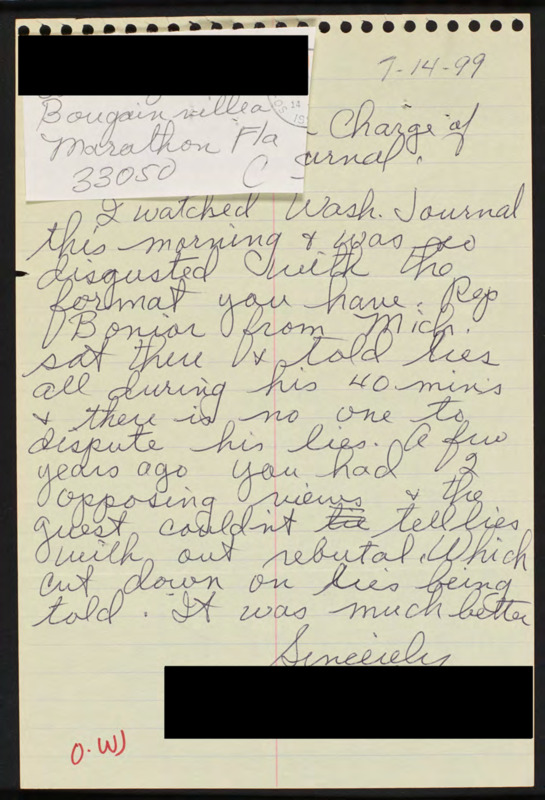 7-14-99
Bougainvillea
Marathon Fla
33050
Charge of
C urnal.
I watched Wash. Journal
this morning & was so
disgusted with the
format you have. Rep
Bonior from Mich.
sat there & told lies
all during his 40 mins
& there is no one to
dispute his lies. A few
years ago you had 2
opposing views & the
guest couldn't tell lies
with out rebutal. Which
cut down on lies being
told. It was much better
Sincerely
O.WJ